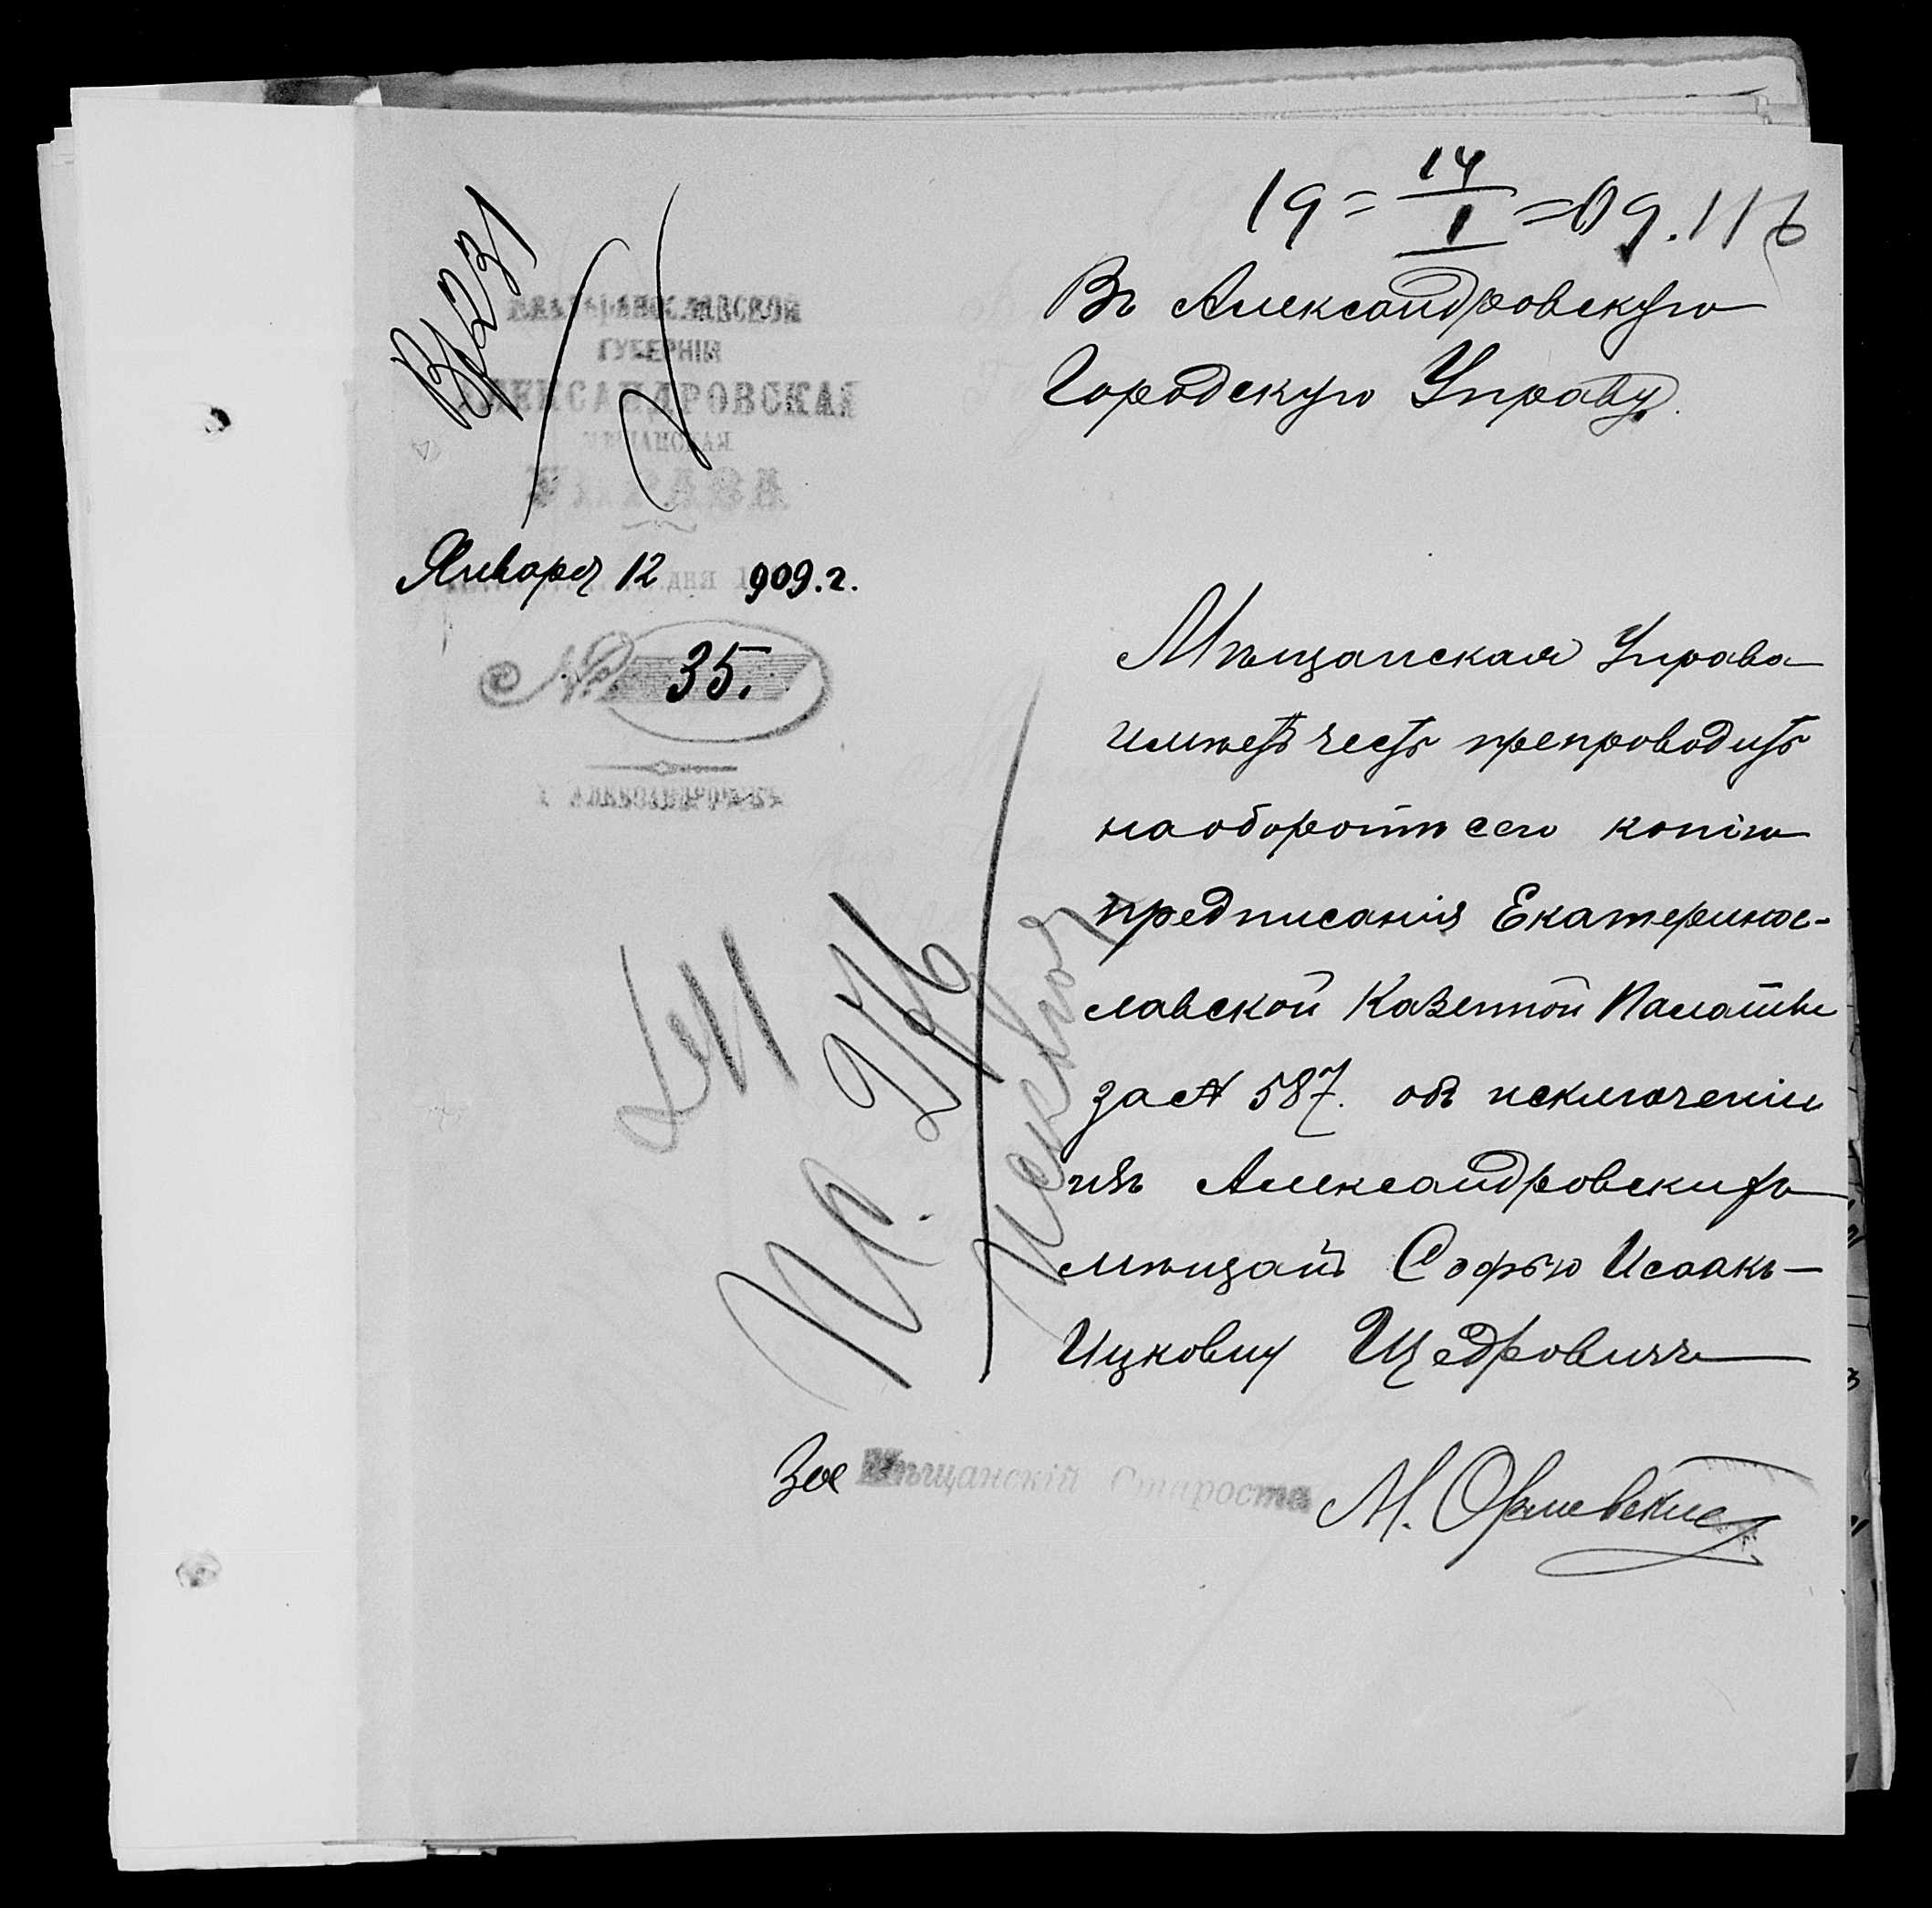 19 = 14/1 = 09. 116
Вх 231
ЕКАТЕРИНОСЛАВСКОЙ
ГУБЕРНІИ
АЛЕКСАНДРОВСКАЯ
МѢЩАНСКАЯ
УПРАВА
Января 12 дня 1909.г.
№ 35.
Г. АЛЕКСАНДРОВСКЪ
Въ Александровскую
Городскую Управу.
Мѣщанская Управа
имѣетъ честь препроводить
на оборотѣ сего копію
предписанія Екатеринос-
лавской Казенной Палаты
за № 587. объ исключеніи
изъ Александровскихъ
мѣщанъ Софью Исаакъ-
Ицковну Щедровичъ
За Мѣщанскій Староста М. Орлевскій